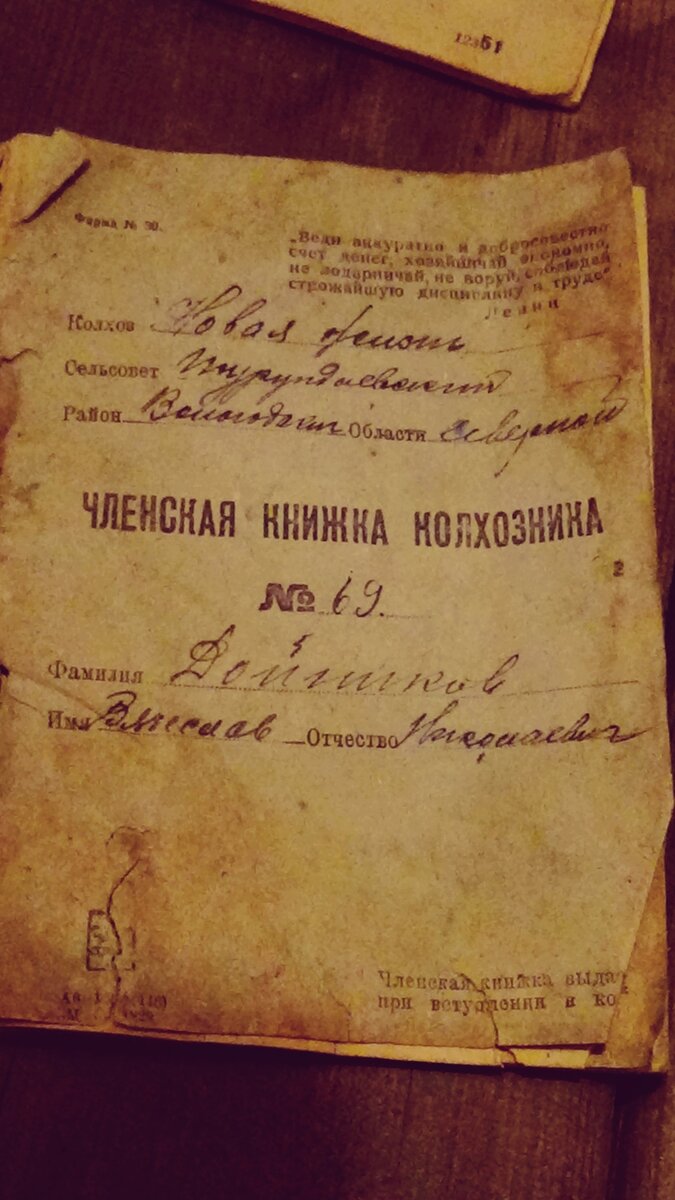 12361
Форма № 30.
„Веди аккуратно и добросовестно
счет денег, хозяйничай экономно,
не лодырничай, не воруй, соблюдай
строжайшую дисциплину в труде“
Ленин
Колхоз Новая жизнь
Сельсовет
Район Вологодский Области Северной
ЧЛЕНСКАЯ КНИЖКА КОЛХОЗНИКА
№ 69.
2
Фамилия Дойников
Имя Вячеслав Отчество Николаевич
Членская книжка выда
при вступлении в ко